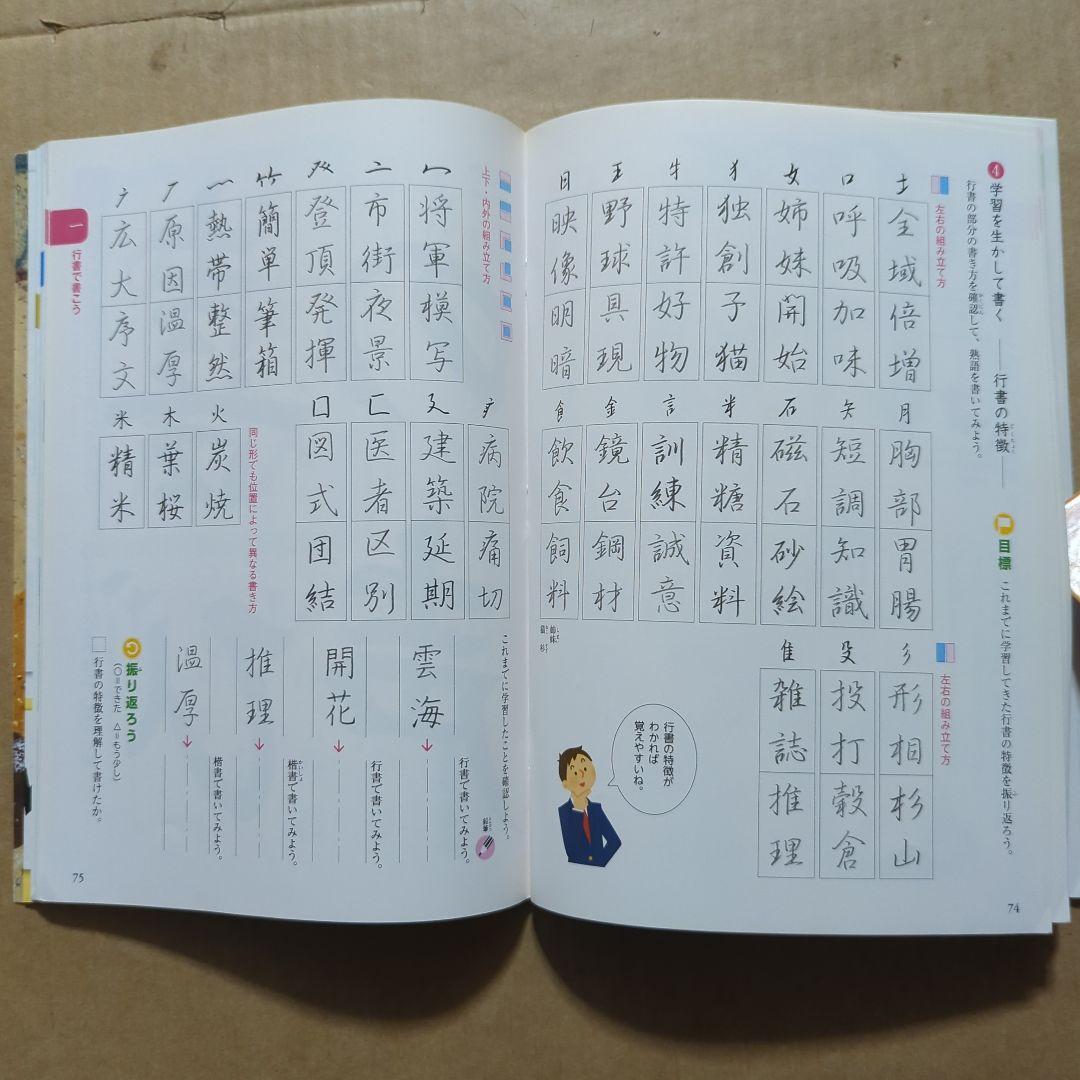 4 学習を生かして書く ── 行書の特徴 ──
行書の部分の書き方を確認して、熟語を書いてみよう。
目標 これまでに学習してきた行書の特徴を振り返ろう。
左右の組み立て方
土 全域倍増
口 呼吸加味
女 姉妹開始
犭 独創子猫
牛 特許好物
王 野球具現
日 映像明暗
月 胸部胃腸
矢 短調知識
石 磁石砂絵
米 精糖資料
言 訓練誠意
金 鏡台鋼材
飠 飲食飼料
左右の組み立て方
彡 形相杉山
殳 投打穀倉
隹 雑誌推理
姉妹
猫 杉
行書の特徴が
わかれば
覚えやすいね。
74
上下・内外の組み立て方
冖 将軍模写
亠 市街夜景
癶 登頂発揮
竹 簡単筆箱
灬 熱帯整然
厂 原因温厚
广 広大序文
疒 病院痛切
廴 建築延期
匚 医者区別
囗 図式団結
同じ形でも位置によって異なる書き方
火 炭焼
木 葉桜
米 精米
これまでに学習したことを確認しよう。
鉛筆
雲海 → 行書で書いてみよう。
開花 → 行書で書いてみよう。
推理 → 楷書で書いてみよう。
温厚 → 楷書で書いてみよう。
振り返ろう
(○=できた △=もう少し)
□ 行書の特徴を理解して書けたか。
一 行書で書こう
75